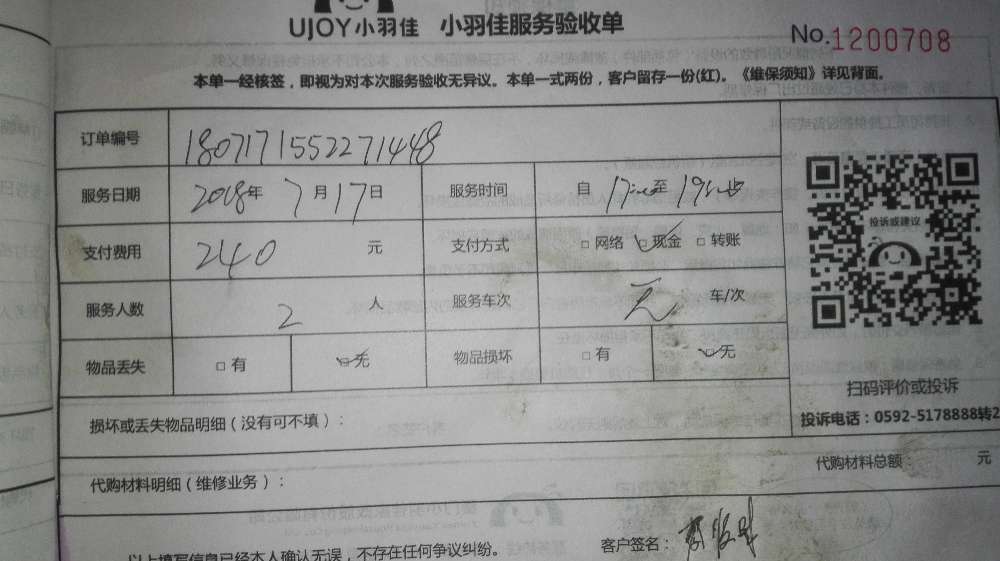 UJOY小羽佳 小羽佳服务验收单
No.1200708
本单一经核签，即视为对本次服务验收无异议。本单一式两份，客户留存一份(红)。《维保须知》详见背面。
订单编号 1807171552271448
服务日期 2018年 7月17日 服务时间 自 17 至 19
支付费用 240 元 支付方式 □网络 □现金 □转账
投诉或建议
服务人数 2 人 服务车次 无 车/次
物品丢失 □有 □无 物品损坏 □有 □无
扫码评价或投诉
损坏或丢失物品明细（没有可不填）：
投诉电话：0592-5178888转2
代购材料明细（维修业务）： 代购材料总额： 元
以上填写信息已经本人确认无误，不存在任何争议纠纷。 客户签名：